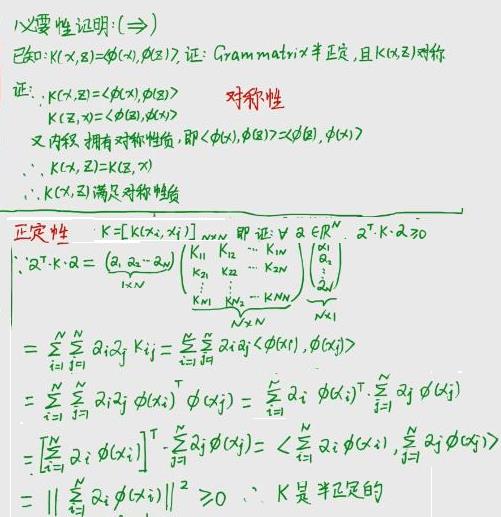 必要性证明:(⇒)
已知:K(x,z)=<φ(x),φ(z)>,证:Gram matrix半正定,且K(x,z)对称
证:∵K(x,z)=<φ(x),φ(z)> 对称性
K(z,x)=<φ(z),φ(x)>
又内积拥有对称性质,即<φ(x),φ(z)>=<φ(z),φ(x)>
∴K(x,z)=K(z,x)
∴K(x,z)满足对称性质
正定性 K=[K(xi,xj)]N×N 即证:∀α∈ℝ^N, α^T·K·α≥0
∵α^T·K·α=(α1 α2 ⋯ αN) (K11 K12 ⋯ K1N) (α1)
K21 K22 ⋯ K2N α2
⋮ ⋮
KN1 KN2 ⋯ KNN αN
1×N N×N N×1
=∑_{i=1}^N ∑_{j=1}^N αiαj Kij=∑_{i=1}^N ∑_{j=1}^N αiαj<φ(xi),φ(xj)>
=∑_{i=1}^N ∑_{j=1}^N αiαj φ(xi)^T φ(xj)=∑_{i=1}^N αi φ(xi)^T·∑_{j=1}^N αj φ(xj)
=[∑_{i=1}^N αi φ(xi)]^T·∑_{j=1}^N αjφ(xj)=<∑_{i=1}^N αi φ(xi),∑_{j=1}^N αjφ(xj)>
=‖∑_{i=1}^N αiφ(xi)‖²≥0 ∴K是半正定的